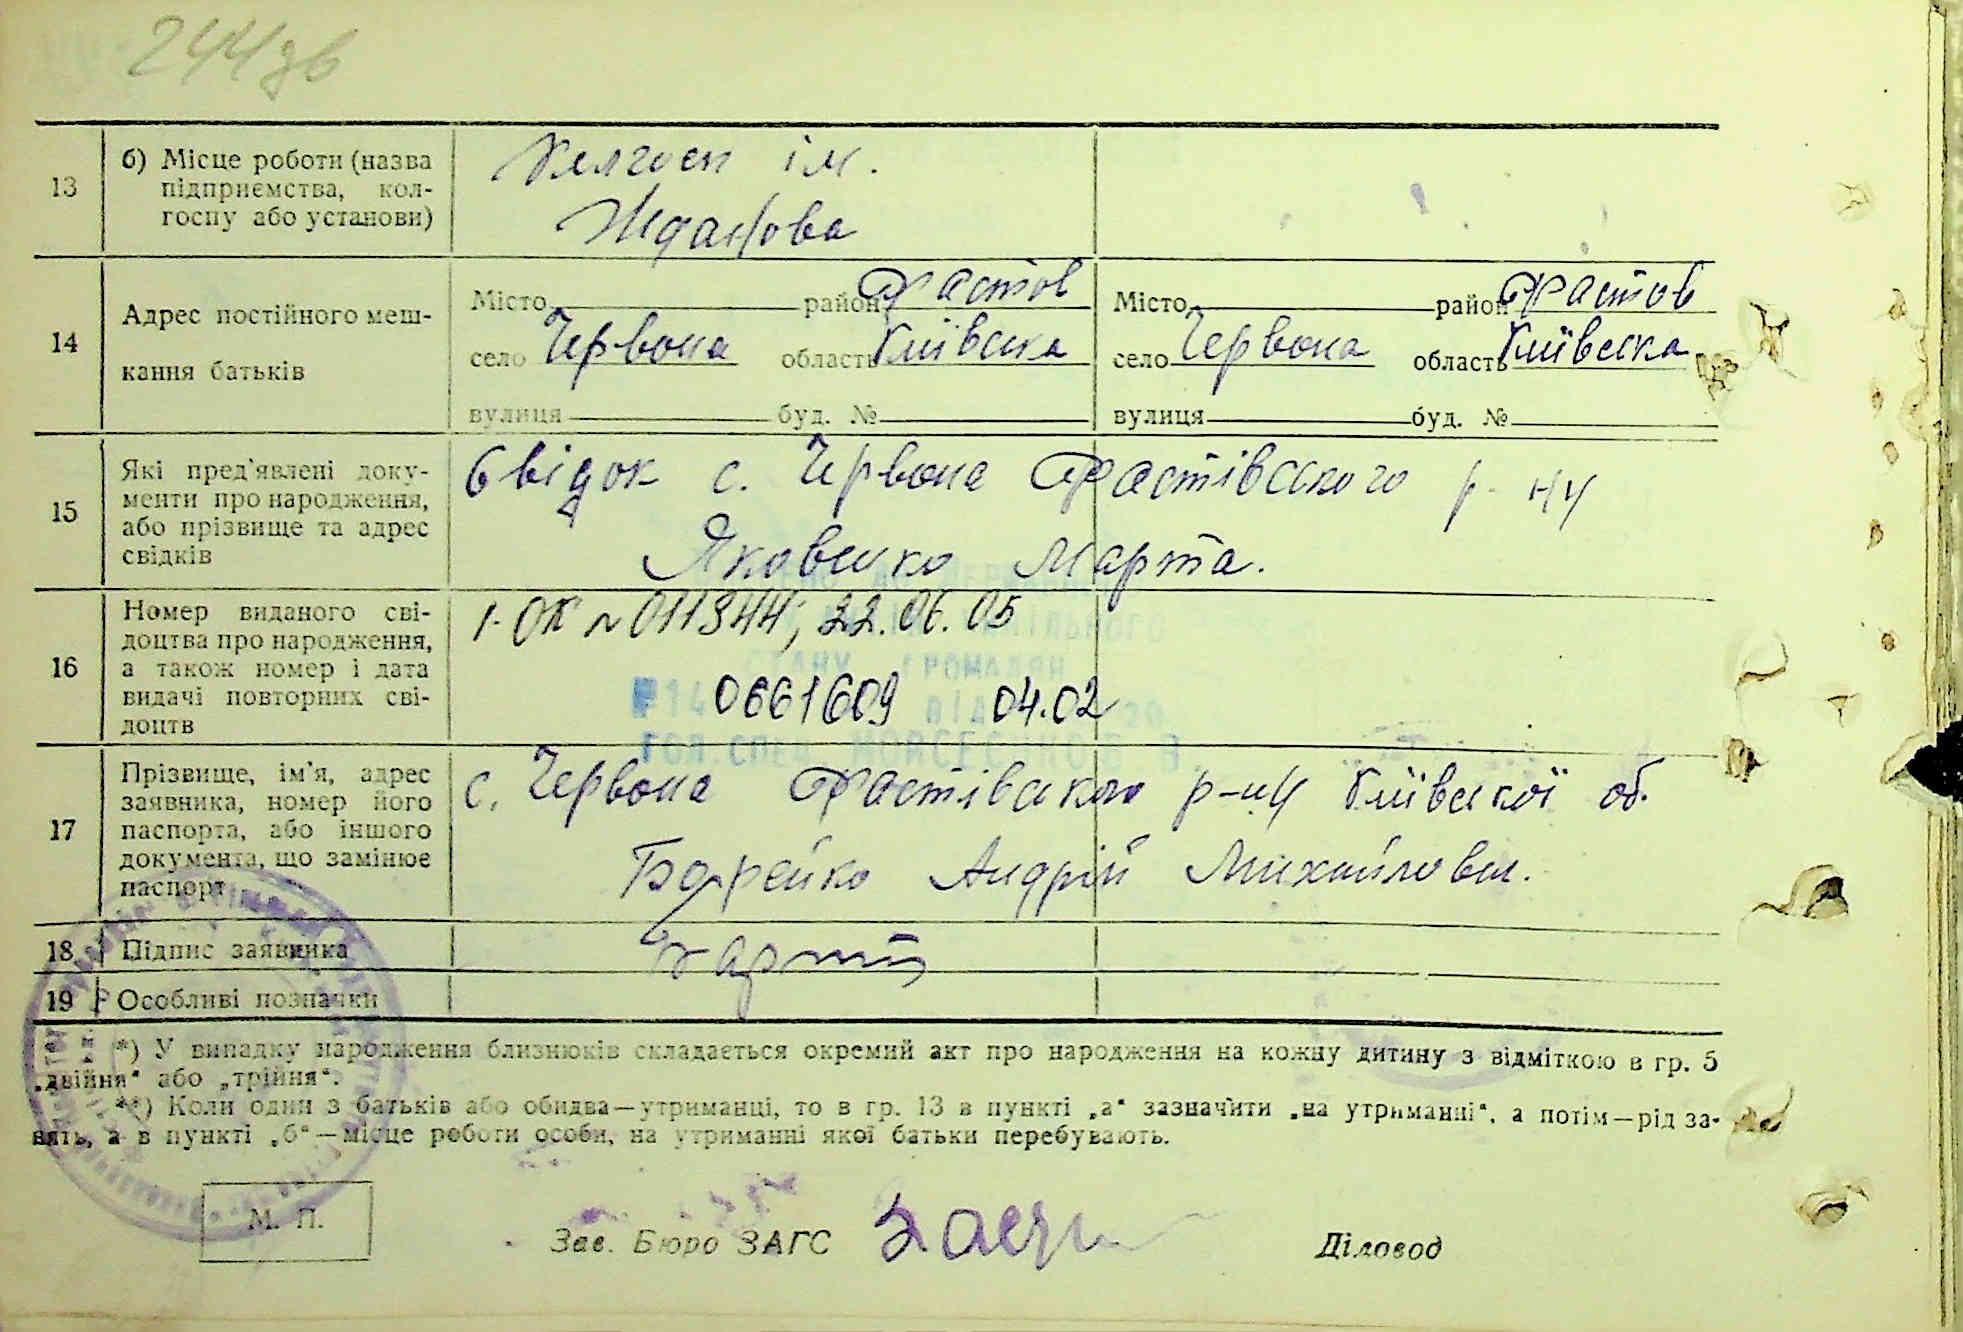 244зв
13 б) Місце роботи (назва підприємства, кол-
госпу або установи)
Колгосп ім.
Жданова
14 Адрес постійного меш-
кання батьків
Місто район Фастов Місто район Фастов
село Червона область Київська село Червона область Київська
вулиця буд. № вулиця буд. №
15 Які пред'явлені доку-
менти про народження,
або прізвище та адрес
свідків
Свідок с. Червона Фастівского р-ну
Яковенко Марта.
16 Номер виданого сві-
доцтва про народження,
а також номер і дата
видачі повторних сві-
доцтв
1-ОК № 011344; 22.06.05
0661609 04.02
СТАНУ ГРОМАДЯН
17 Прізвище, ім'я, адрес
заявника, номер його
паспорта, або іншого
документа, що замінює
паспорт
с. Червона Фастівського р-ну Київскої об.
Андрій Михайлович.
18 Підпис заявника
19 Особливі позначки
*) У випадку народження близнюків складається окремий акт про народження на кожну дитину з відміткою в гр. 5
„двійня" або „трійня".
**) Коли один з батьків або обидва—утриманці, то в гр. 13 в пункті „а" зазначити „на утриманні", а потім—рід за-
нять, а в пункті „б"—місце роботи особи, на утриманні якої батьки перебувають.
М. П.
Зав. Бюро ЗАГС Діловод